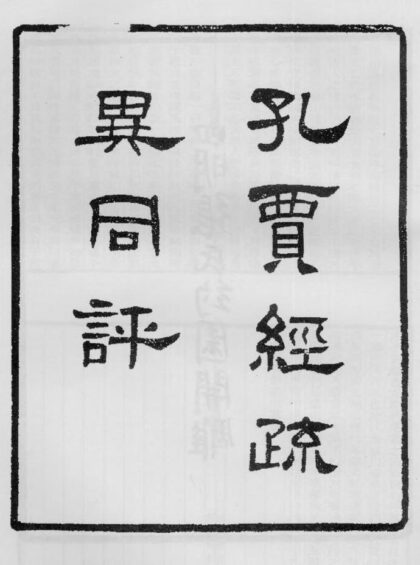 孔賈經疏
異同評